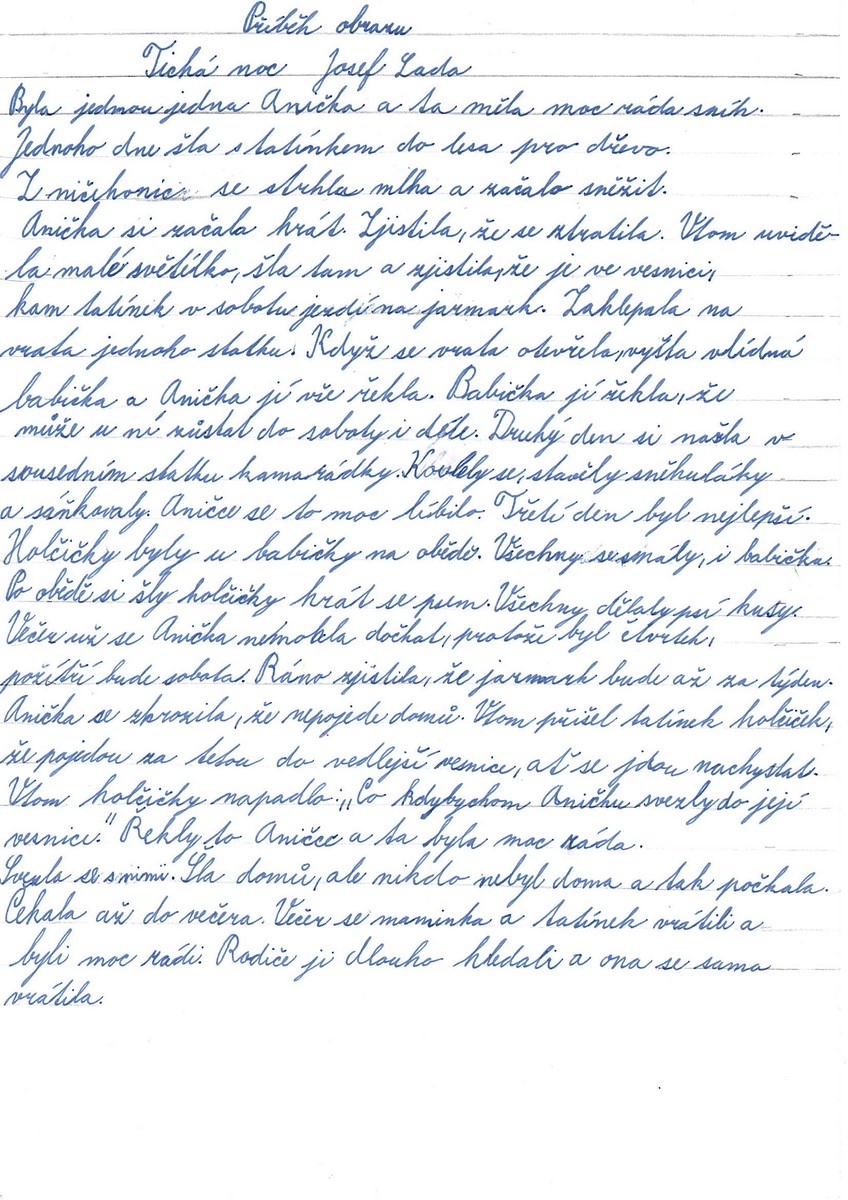 Příběh obrazu
Tichá noc Josef Lada
Byla jednou jedna Anička a ta měla moc ráda sníh.
Jednoho dne šla s tatínkem do lesa pro dřevo.
Z ničehonic se strhla mlha a začalo sněžit.
Anička si začala hrát. Zjistila, že se ztratila. Vtom uvidě-
la malé světélko, šla tam a zjistila, že je ve vesnici,
kam tatínek v sobotu jezdí na jarmark. Zaklepala na
vrata jednoho statku. Když se vrata otevřela, vyšla vlídná
babička a Anička jí vše řekla. Babička jí řekla, že
může u ní zůstat do soboty i déle. Druhý den si našla v
sousedním statku kamarádky. se, stavěly sněhuláky
a sáňkovaly. Aničce se to moc líbilo. Třetí den byl nejlepší.
Holčičky byly u babičky na obědě. Všechny se smály, i babička.
Po obědě si šly holčičky hrát se psem. Všechny dělaly psí kusy.
Večer už se Anička nemohla dočkat, protože byl čtvrtek,
pozítří bude sobota. Ráno zjistila, že jarmark bude až za týden.
Anička se zhrozila, že nepojede domů. Vtom přišel tatínek holčiček,
že pojedou za tetou do vedlejší vesnice, ať se jdou nachystat.
Vtom holčičky napadlo: „Co kdybychom Aničku svezly do její
vesnice." Řekly to Aničce a ta byla moc ráda.
Svezla se s nimi. Šla domů, ale nikdo nebyl doma a tak počkala.
Čekala až do večera. Večer se maminka a tatínek vrátili a
byli moc rádi. Rodiče ji dlouho hledali a ona se sama
vrátila.